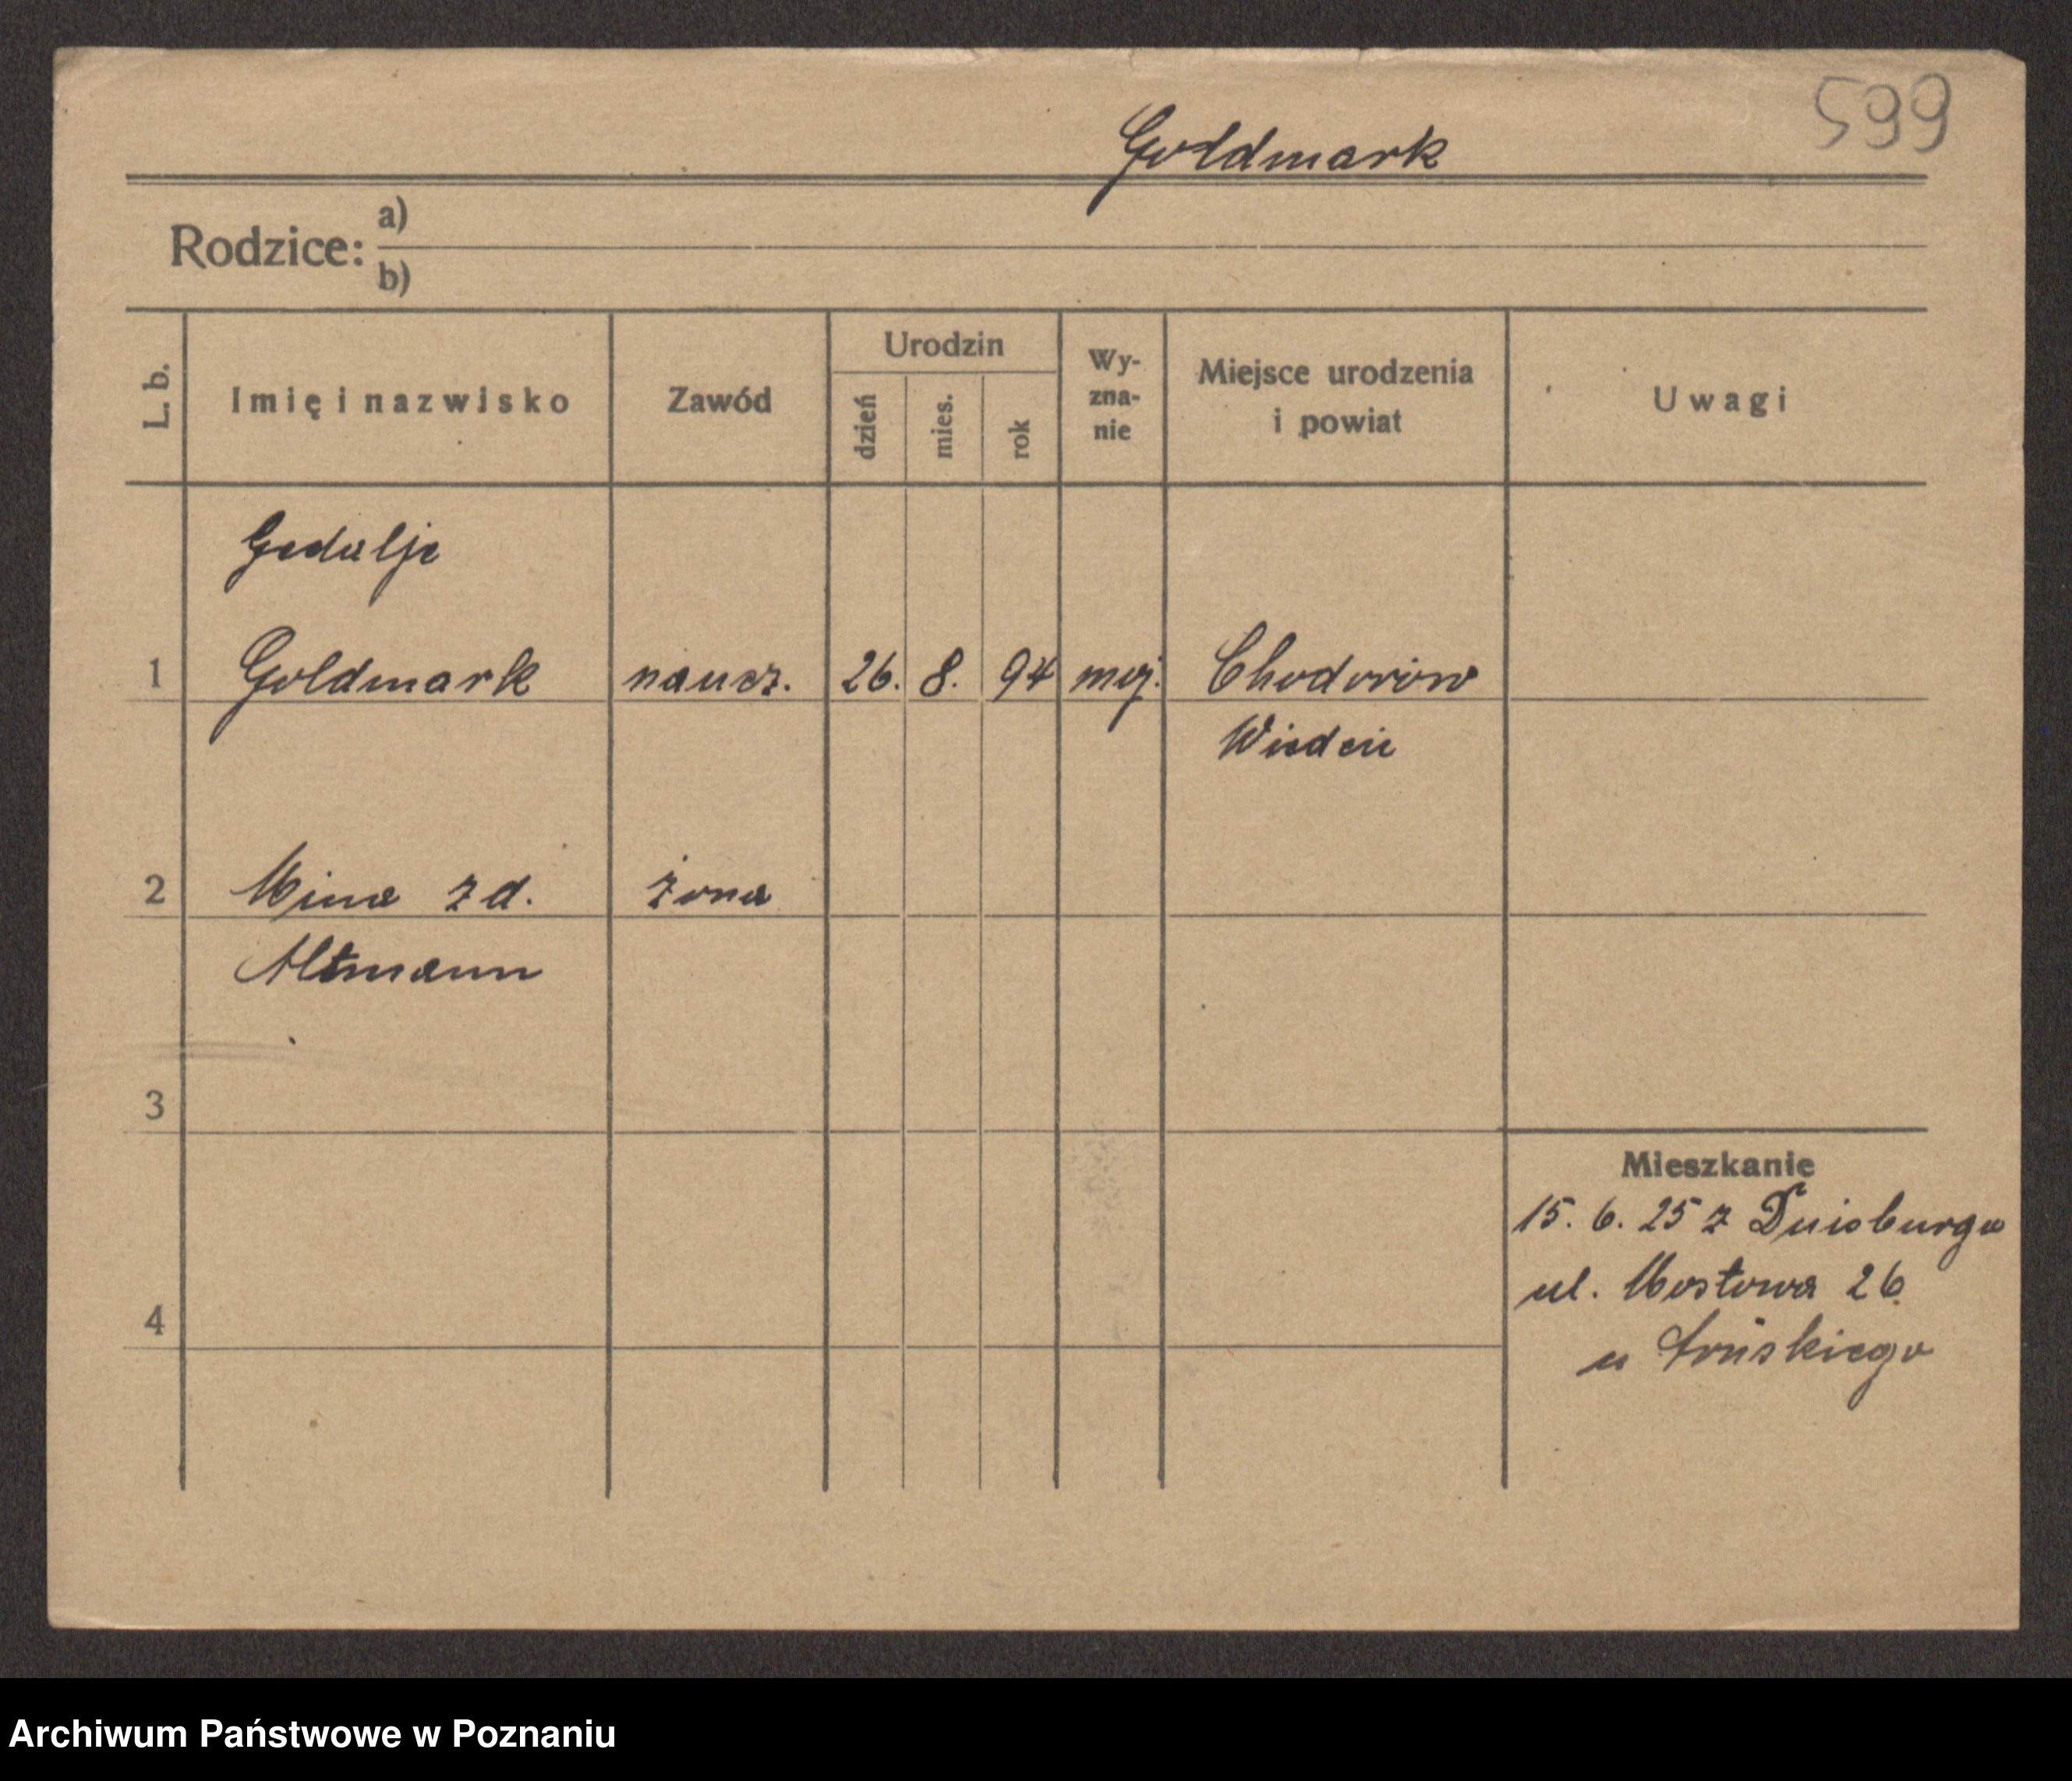 599
Goldmark
Rodzice: a)
b)
L. b. Imię i nazwisko Zawód Urodzin dzień mies. rok Wy-zna-nie Miejsce urodzenia i powiat Uwagi
Gedalje
1 Goldmark naucz. 26. 8. 94 moj. Chodorów
Wiedeń
2 Mina zd. żona
Altmann
3
Mieszkanie
15. 6. 25 z Duisburga
ul. Mostowa 26
4
u
Archiwum Państwowe w Poznaniu